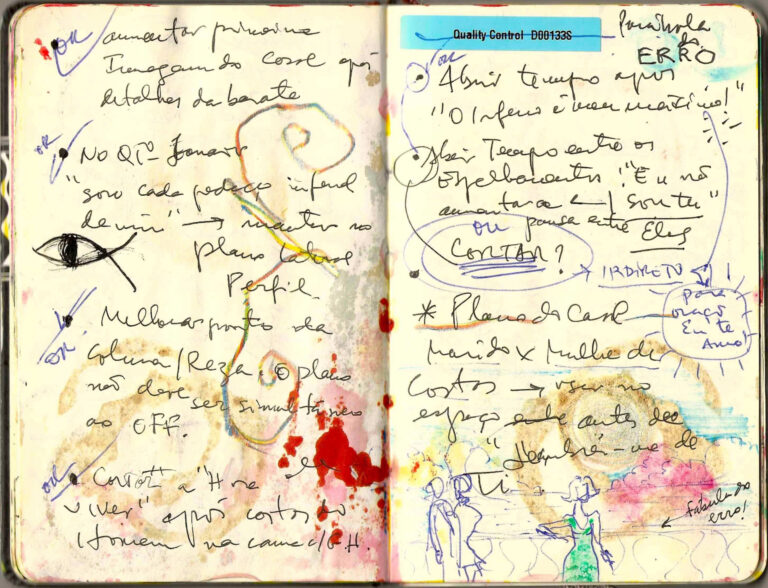 OK
aumentar primeira
Imagem do Casal após
detalhes da barata
OK
• No QTº
"sou cada pedaço infernal
de mim" → manter no
plano lateral
Perfil.
OK
• Melhorar ponto da
Coluna/Reza. O plano
não deve ser simultâneo
ao OFF.
OK
• Cortar a "Hora de
viver" após costas do
Homem na cama c/ G.H.
Quality Control D00133S
Parábola
do
ERRO
OK
• Abrir tempo após
"O Inferno é meu máximo!"
• Abrir Tempo entre os
Espelhamentos! "Eu não
aumentar
ou pausa entre Eles
CORTAR?
→ IR DIRETO
para
Eu te
Amo!
* Plano do Casal
Marido x Mulher de
Costas → usar no
espaço antes de
de
Ti
fábula do
erro!